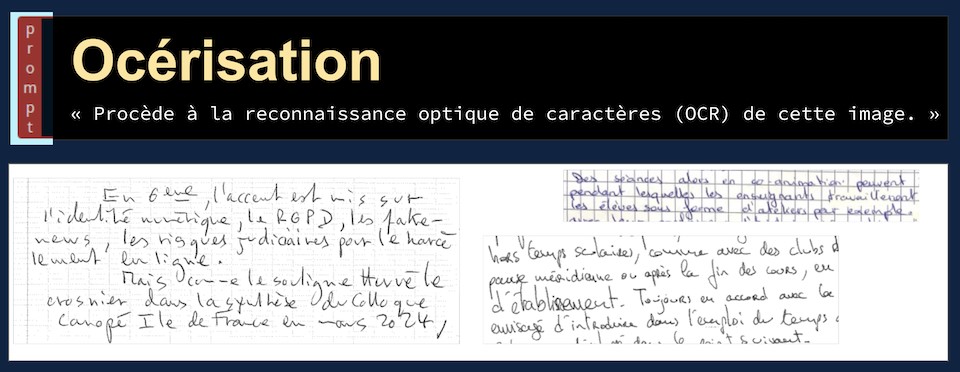 prompt
Océrisation
« Procède à la reconnaissance optique de caractères (OCR) de cette image. »
En 6eme, l'accent est mis sur
l'identité numérique, le RGPD, les fake-
news, les risques judiciaires pour le harcè
lement en ligne.
Mais comme le souligne Hervé le
crosnier dans la synthèse du Colloque
Canopé Ile de France en mars 2024,
Des séances alors en co animation peuvent
pendant lesquelles les enseignants travaillent
les élèves sous forme d'ateliers par exemple.
hors temps scolaires, comme avec des clubs d
pause méridienne ou après la fin des cours, en
d'établissement. Toujours en accord avec le
envisagé d'introduire dans l'emploi du temps